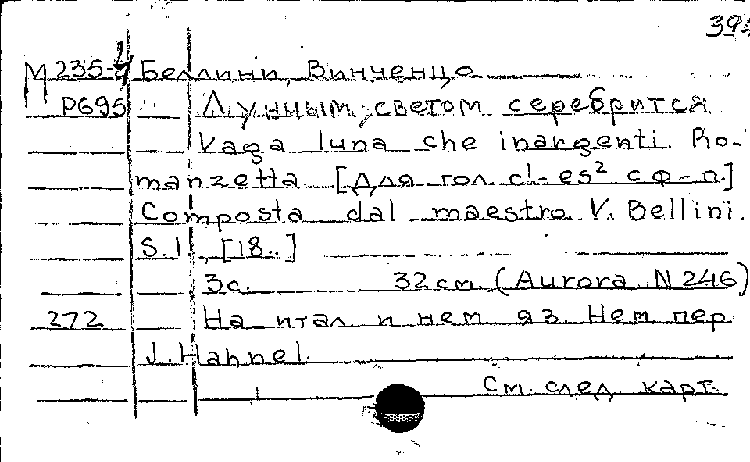 М 235-4 Беллини, Винченцо
P695 Лунным светом серебрится
Vaga luna che inargenti. Ro-
manzetta [Для гол. c¹-es² с ф-п.]
Composta dal maestro V. Bellini.
S.l., [18..]
3с. 32см (Aurora N 246)
272 На итал. и нем. яз. Нем. пер.
J. Hahnel.
См. след. карт.